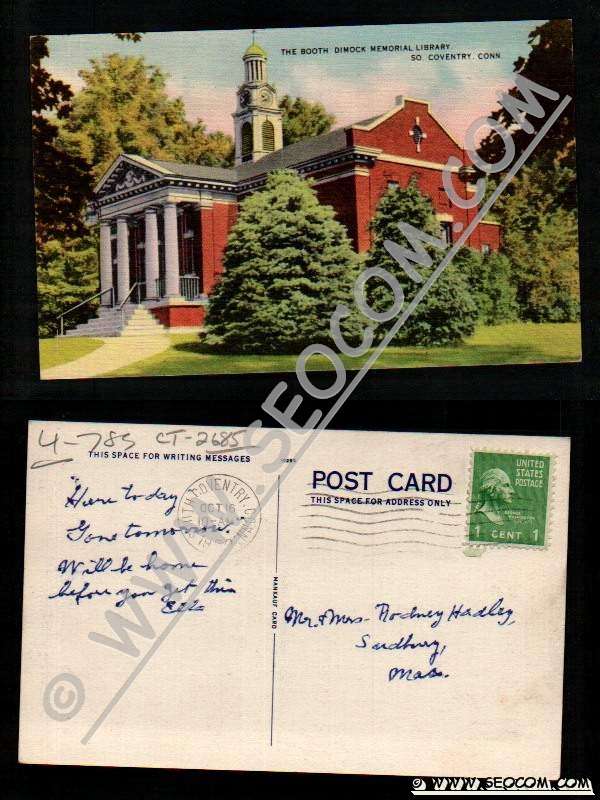 THE BOOTH DIMOCK MEMORIAL LIBRARY
SO. COVENTRY, CONN.
4-785 CT-2685
THIS SPACE FOR WRITING MESSAGES
POST CARD
THIS SPACE FOR ADDRESS ONLY
SOUTH COVENTRY, CONN.
OCT 16
UNITED STATES
POSTAGE
1 CENT 1
"Here today
Gone tomorrow."
Will be home
before you get this
MANKAUF CARD
Mr. & Mrs. Rodney Hadley,
Sudbury,
Mass.
© WWW.SEOCOM.COM
© WWW.SEOCOM.COM